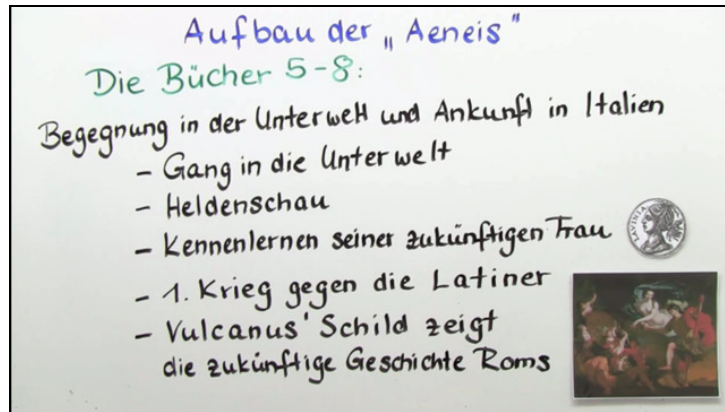 Aufbau der „Aeneis"
Die Bücher 5-8:
Begegnung in der Unterwelt und Ankunft in Italien
- Gang in die Unterwelt
- Heldenschau
- Kennenlernen seiner zukünftigen Frau
LAVINIA
- 1. Krieg gegen die Latiner
- Vulcanus' Schild zeigt
die zukünftige Geschichte Roms